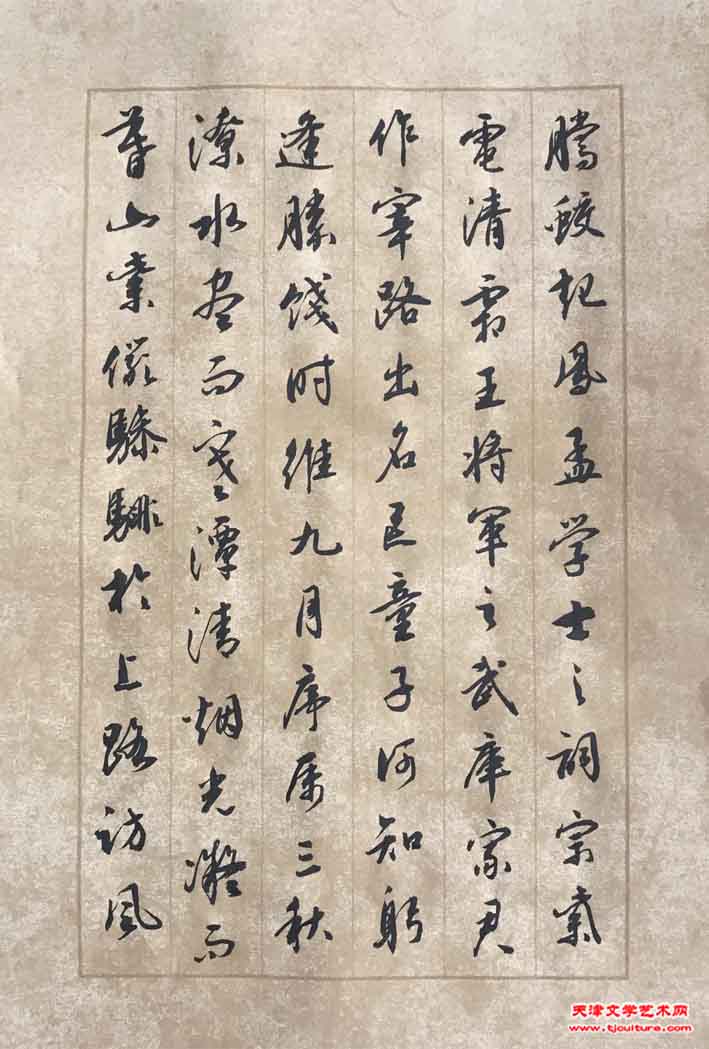 騰蛟起鳳孟学士之詞宗紫
電清霜王将軍之武庫家君
作宰路出名區童子何知躬
逢勝餞时維九月序属三秋
潦水盡而寒潭清烟光凝而
暮山紫儼驂騑於上路訪風
天津文学艺术网
www.tjculture.com